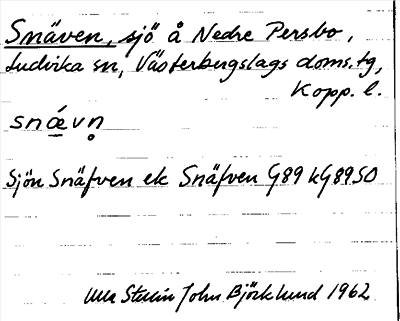 Snäven, sjö å Nedre Persbo,
Ludvika sn, Västerbergslags doms.tg,
Kopp. l.
snǽvṇ
Sjön Snäfven ek Snäfven G89 kG89SO
Ulla Stenin John Björklund 1962